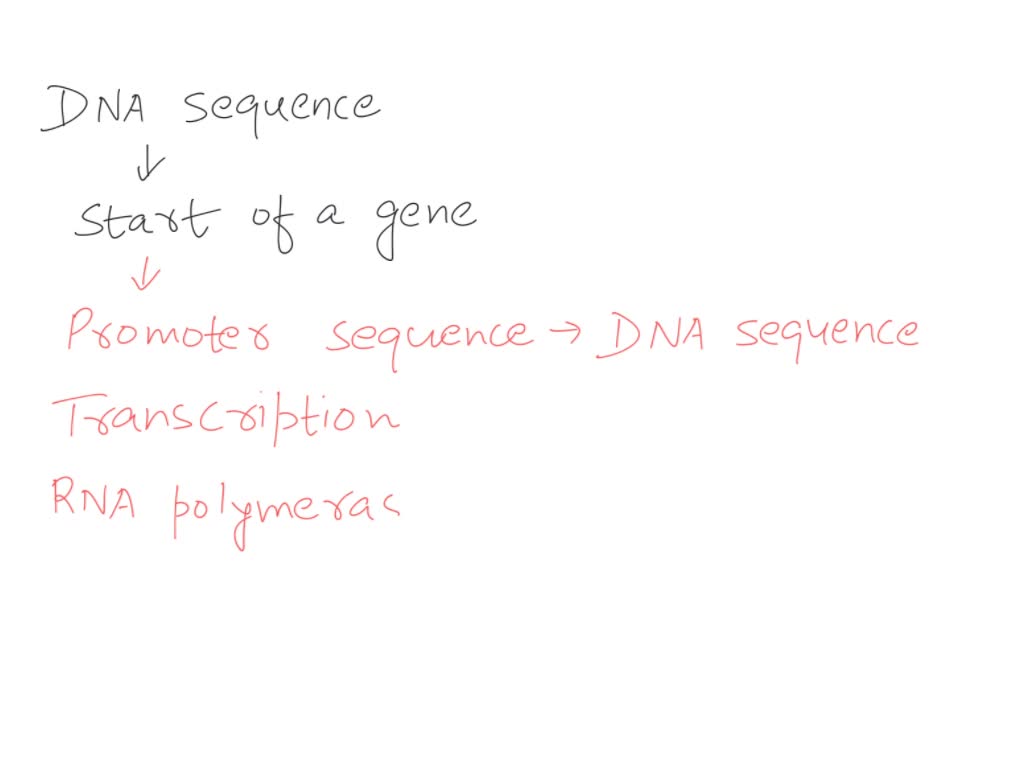 DNA sequence
↓
Start of a gene
↓
Promoter sequence → DNA sequence
Transcription
RNA polymeras